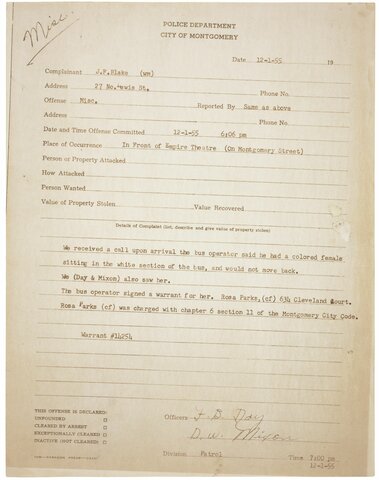 Misc.
POLICE DEPARTMENT
CITY OF MONTGOMERY
Date 12-1-55 19
Complainant J.F.Blake (wm)
Address 27 No.Lewis St. Phone No.
Offense Misc. Reported By Same as above
Address Phone No.
Date and Time Offense Committed 12-1-55 6:06 pm
Place of Occurrence In Front of Empire Theatre (On Montgomery Street)
Person or Property Attacked
How Attacked
Person Wanted
Value of Property Stolen Value Recovered
Details of Complaint (list, describe and give value of property stolen)
We received a call upon arrival the bus operator said he had a colored female
sitting in the white section of the bus, and would not move back.
We (Day & Mixon) also saw her.
The bus operator signed a warrant for her. Rosa Parks,(cf) 634 Cleveland Court.
Rosa Parks (cf) was charged with chapter 6 section 11 of the Montgomery City Code.
Warrant #14254
THIS OFFENSE IS DECLARED:
UNFOUNDED
CLEARED BY ARREST
EXCEPTIONALLY CLEARED
INACTIVE (NOT CLEARED)
Officers F. B. Day
D. W. Mixon
Division Patrol Time 7:00 pm
12-1-55